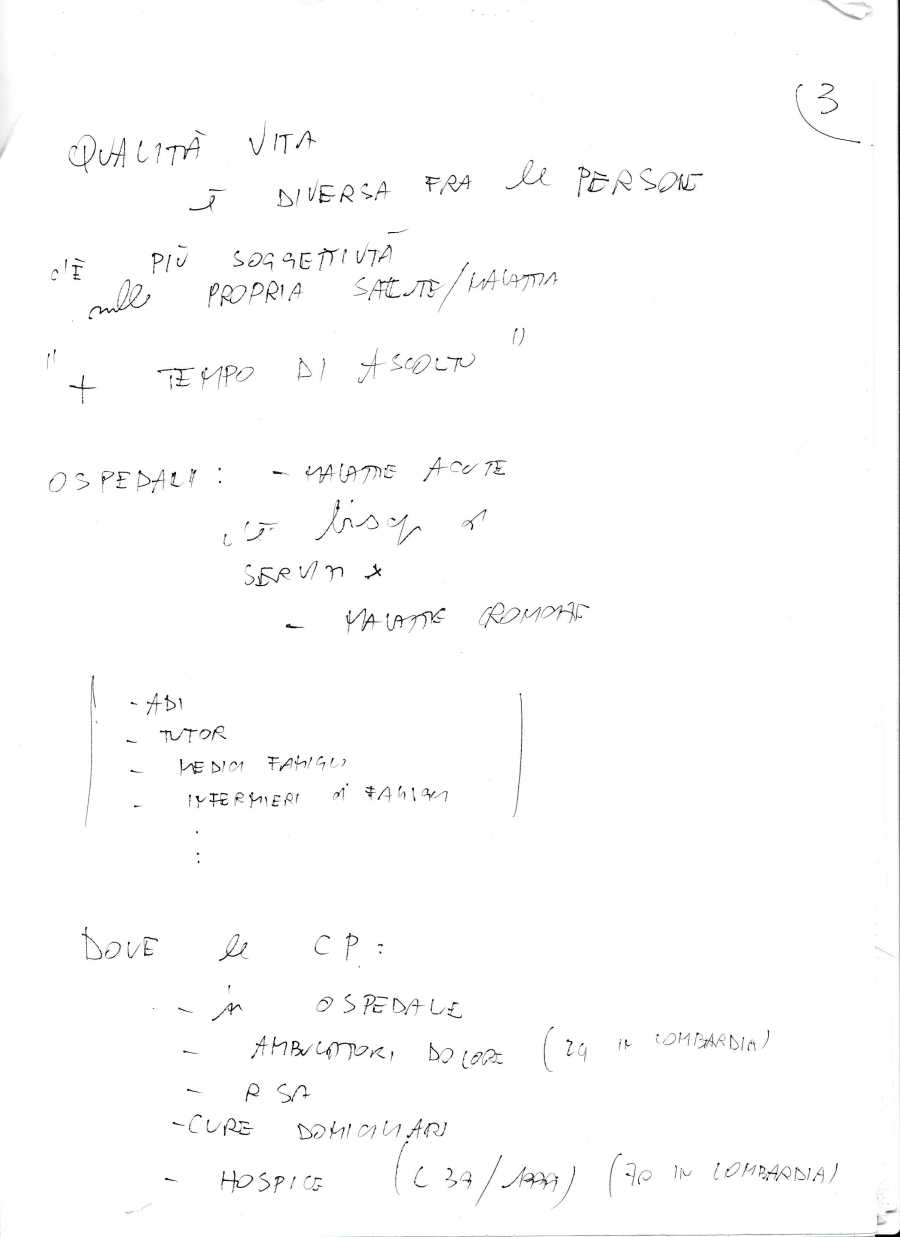 3
QUALITÀ VITA
È DIVERSA FRA le PERSONE
c'È PIÙ SOGGETTIVITÀ
sulla PROPRIA SALUTE/MALATTIA
"+ TEMPO DI ASCOLTO"
OSPEDALI: - MALATTIE ACUTE
c'È bisog di
SERVIZI x
- MALATTIE CRONICHE
- ADI
- TUTOR
- MEDICI FAMIGLI
- INFERMIERI di FAMIGLI
DOVE le CP:
- in OSPEDALE
- AMBULATORI DOLORE ( IN LOMBARDIA)
- RSA
- CURE DOMICILIARI
- HOSPICE (L 39/1999) (70 IN LOMBARDIA)